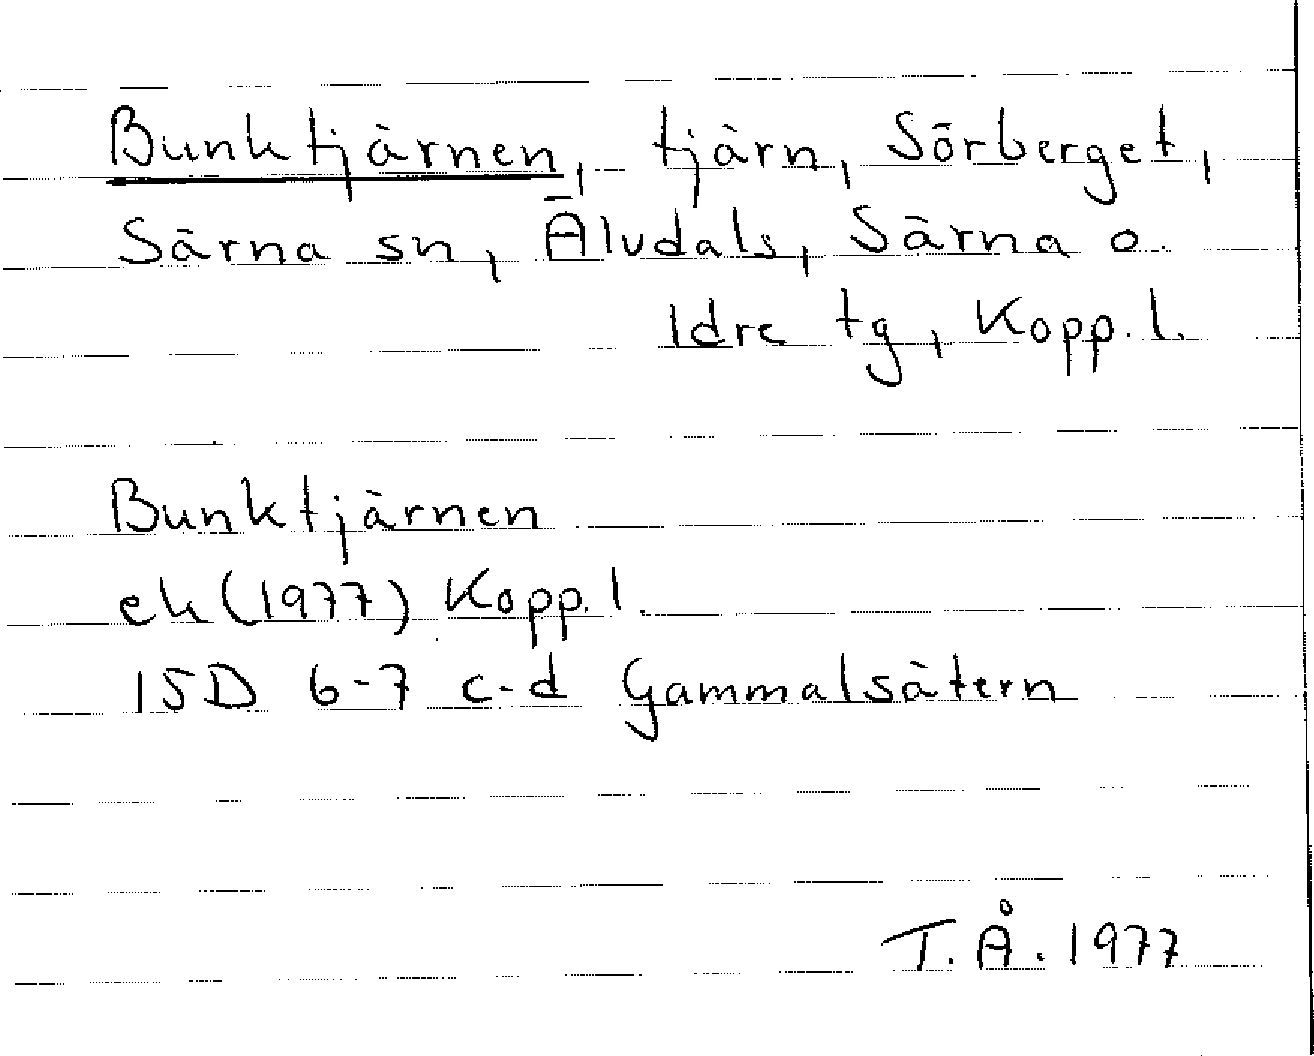 Bunktjärnen, tjärn, Sörberget,
Särna sn, Älvdals, Särna o.
Idre tg, Kopp. l.
Bunktjärnen
ek (1977) Kopp. l.
15D 6-7 c-d Gammalsätern
T. Å. 1977